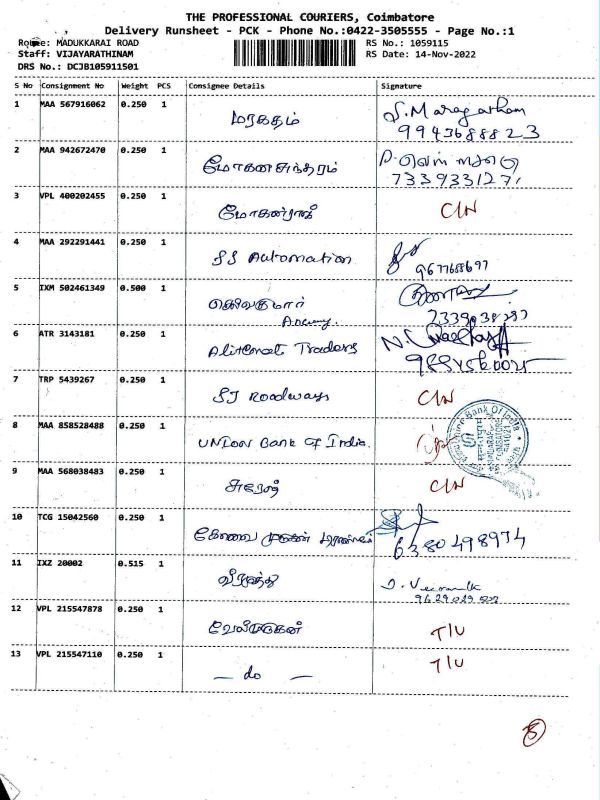 THE PROFESSIONAL COURIERS, Coimbatore
Delivery Runsheet - PCK - Phone No.:0422-3505555 - Page No.:1
Route: MADUKKARAI ROAD RS No.: 1059115
Staff: VIJAYARATHINAM RS Date: 14-Nov-2022
DRS No.: DCJB105911501
S No Consignment No Weight PCS Consignee Details Signature
1 MAA 567916062 0.250 1 மரகதம் S. Maragatham
9943688823
2 MAA 942672470 0.250 1 மோகனசுந்தரம்
7339331271
3 VPL 400202455 0.250 1 மோகன்ராஜ் C/N
4 MAA 292291441 0.250 1 SS Automation
9677688697
5 IXM 502461349 0.500 1 செல்வகுமார்
6 ATR 3143181 0.250 1 Traders
7 TRP 5439267 0.250 1 SJ Roadways C/N
8 MAA 858528488 0.250 1 UNION Bank Of India.
9 MAA 568038483 0.250 1 சுரேஷ் C/N
10 TCG 15042560 0.250 1 கோவை முருகன்
6380498974
11 IXZ 20002 0.515 1
12 VPL 215547878 0.250 1 வேல்முருகன் T/U
13 VPL 215547110 0.250 1 — do — T/U
8